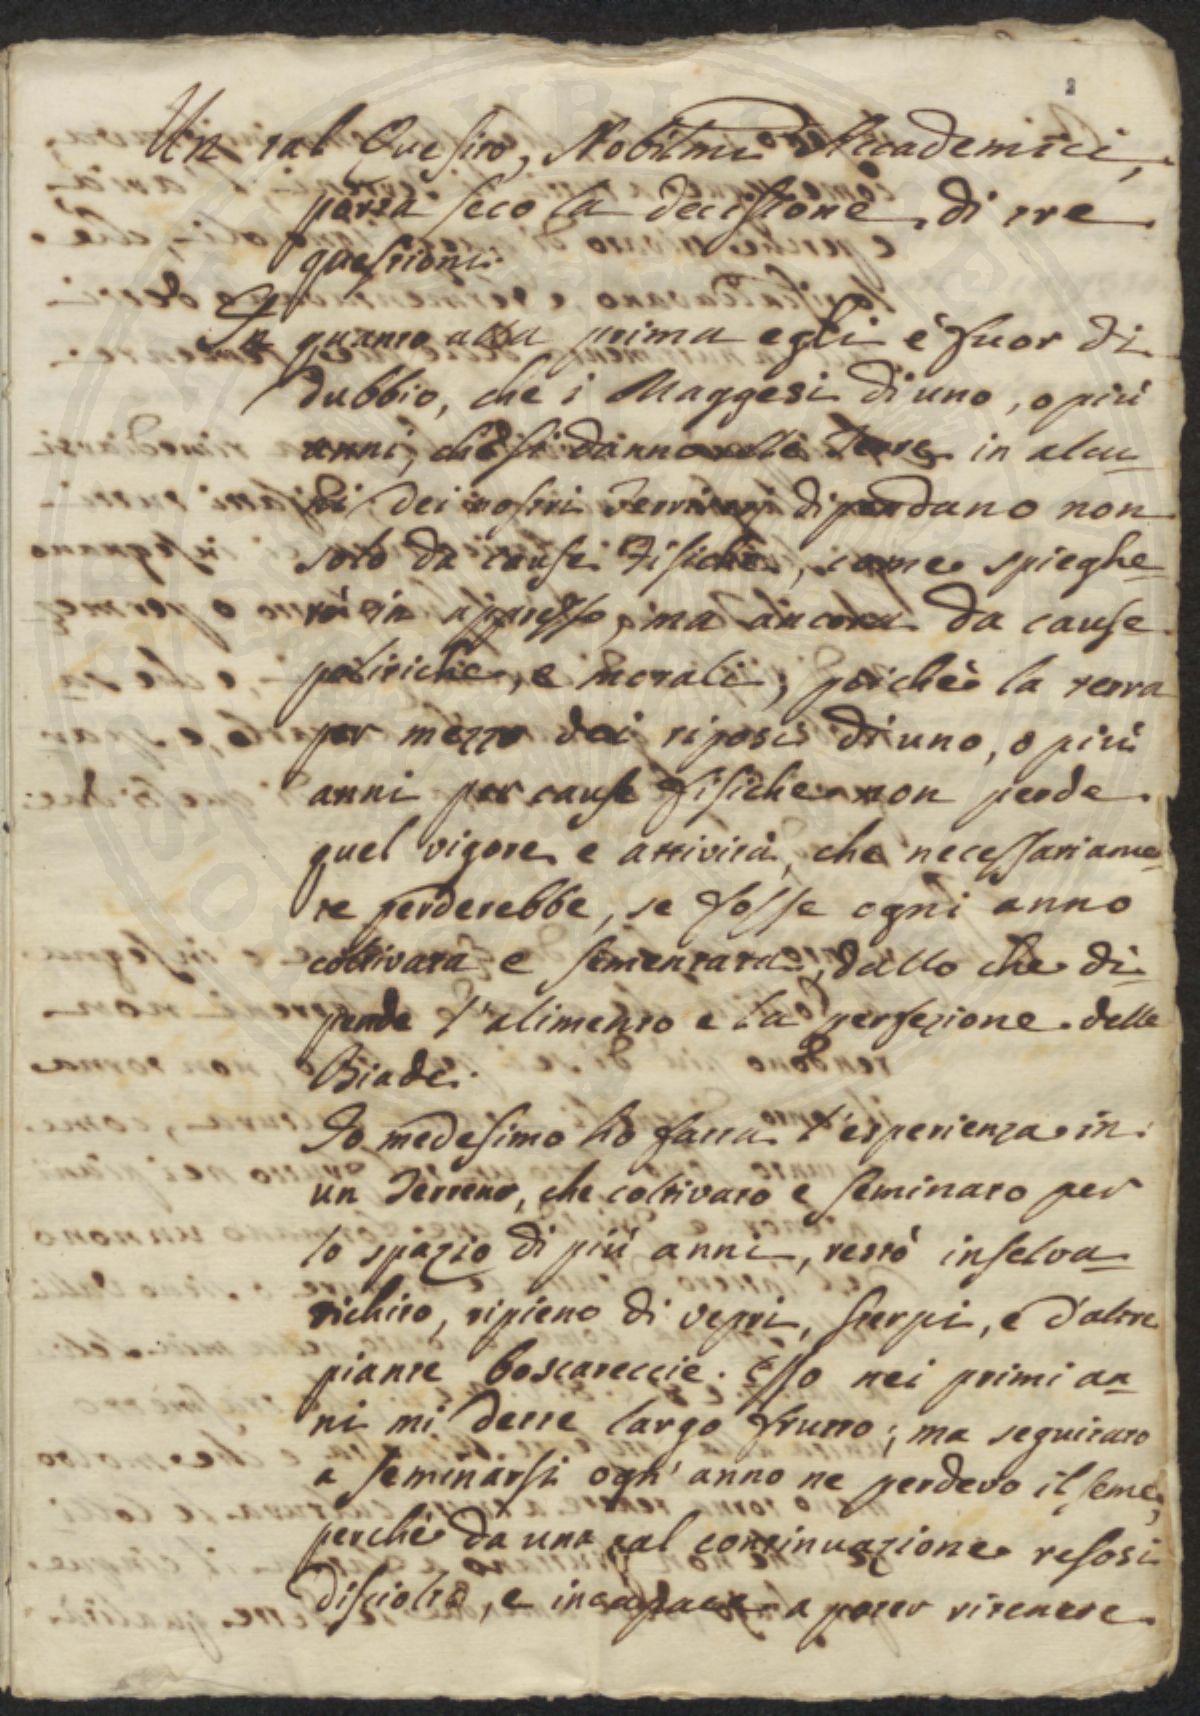 2
Un tal Quesito, Nobilmi Accademici,
porta seco la decisione di tre
questioni.
In quanto alla prima egli è fuor di
dubbio, che i Maggesi di uno, o più
anni, che si danno alle Terre in alcu-
ni dei nostri Territorj dipendano non
solo da cause Fisiche, come spieghe-
rò in appresso, ma ancora da cause
politiche, e morali; poichè la terra
per mezzo dei riposi di uno, o più
anni per cause fisiche non perde
quel vigore e attività, che necessariame-
te perderebbe, se fosse ogni anno
coltivata e sementata, dallo che di-
pende l'alimento e la perfezione delle
Biade.
Io medesimo hò fatta l'esperienza in
un Terreno, che coltivato e seminato per
lo spazio di più anni, restò inselva-
tichito, ripieno di vepri, sterpi, e d'altre
piante boscareccie. Esso nei primi an-
ni mi dette largo frutto; ma seguitato
a seminarsi ogn' anno ne perdevo il seme,
perchè da una tal continuazione resosi
disciolto, e incapace a poter ritenere